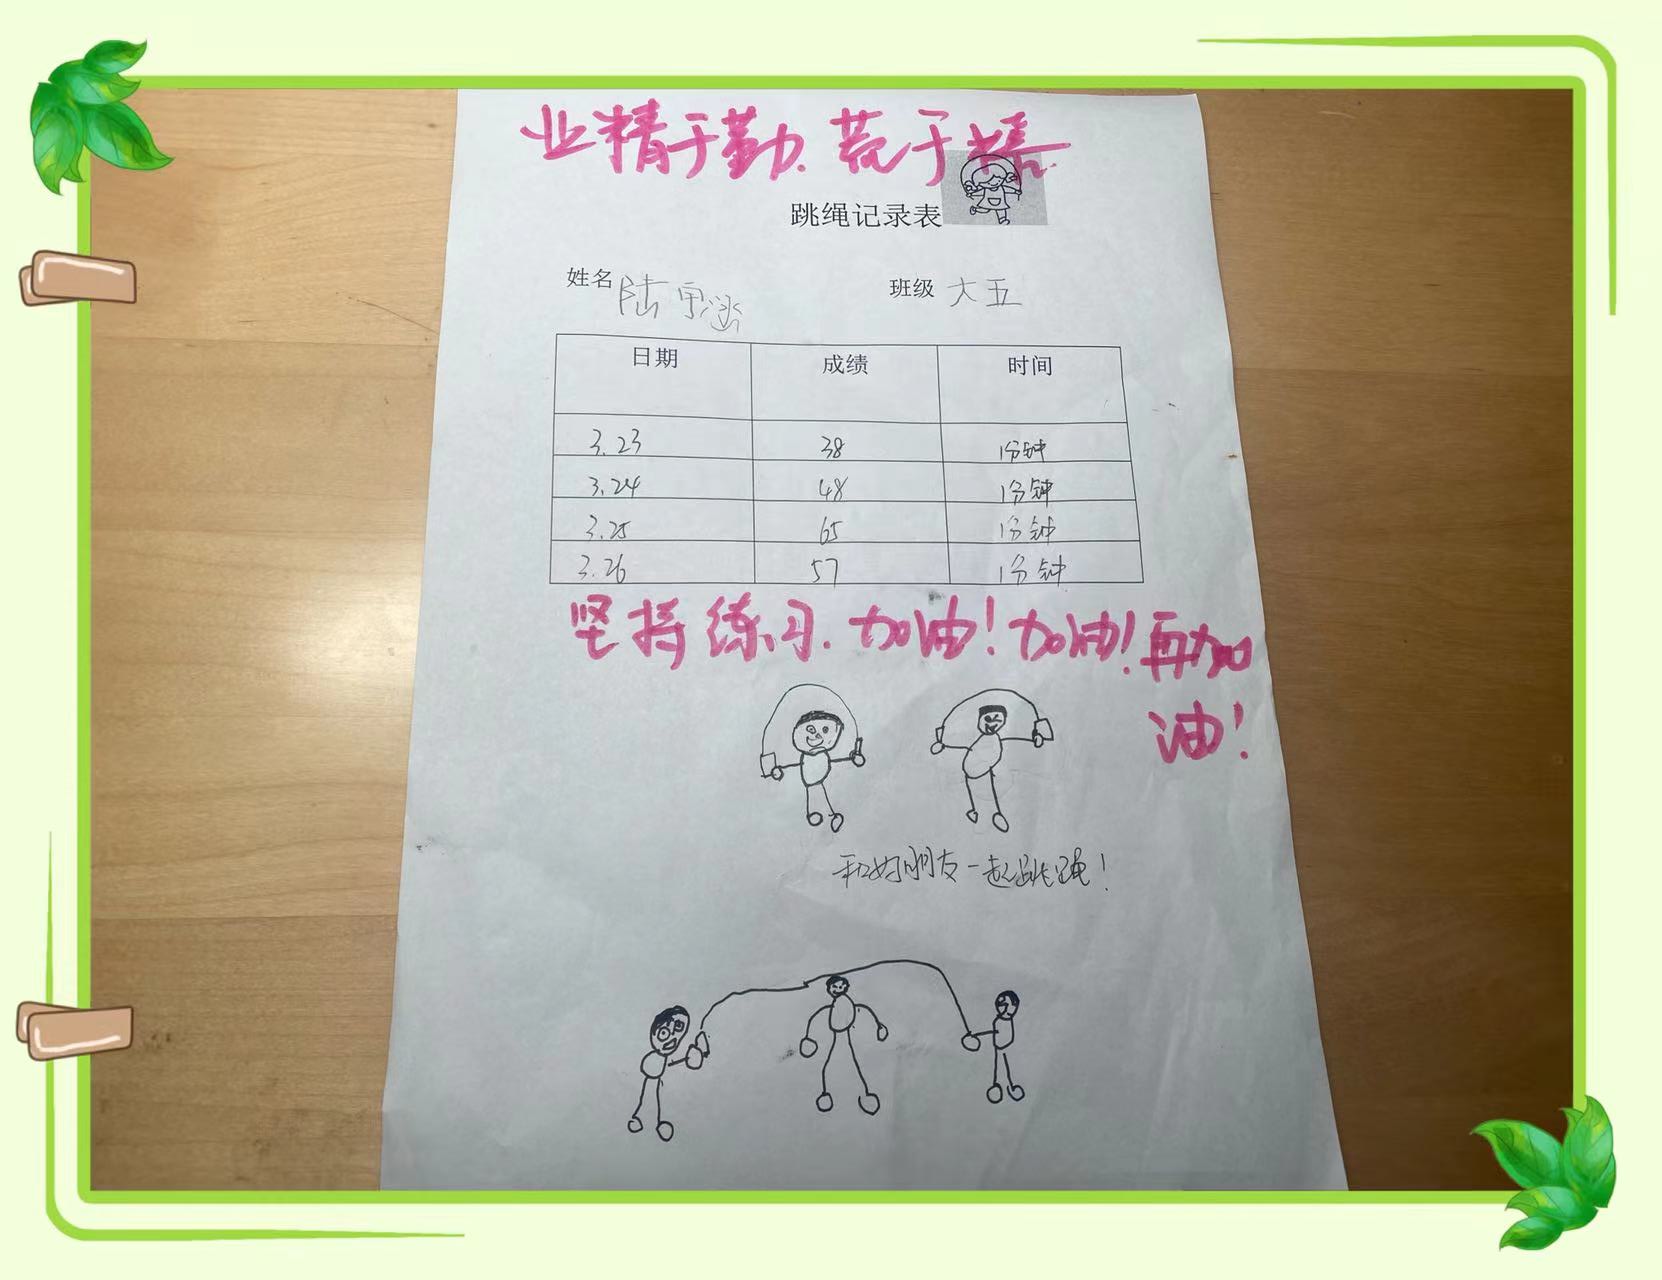 业精于勤.荒于嬉.
跳绳记录表
姓名 陆雨涵 班级 大五
日期 成绩 时间
3.23 38 1分钟
3.24 48 1分钟
3.25 65 1分钟
3.26 57 1分钟
坚持练习.加油!加油!再加
油!
和好朋友一起跳绳!